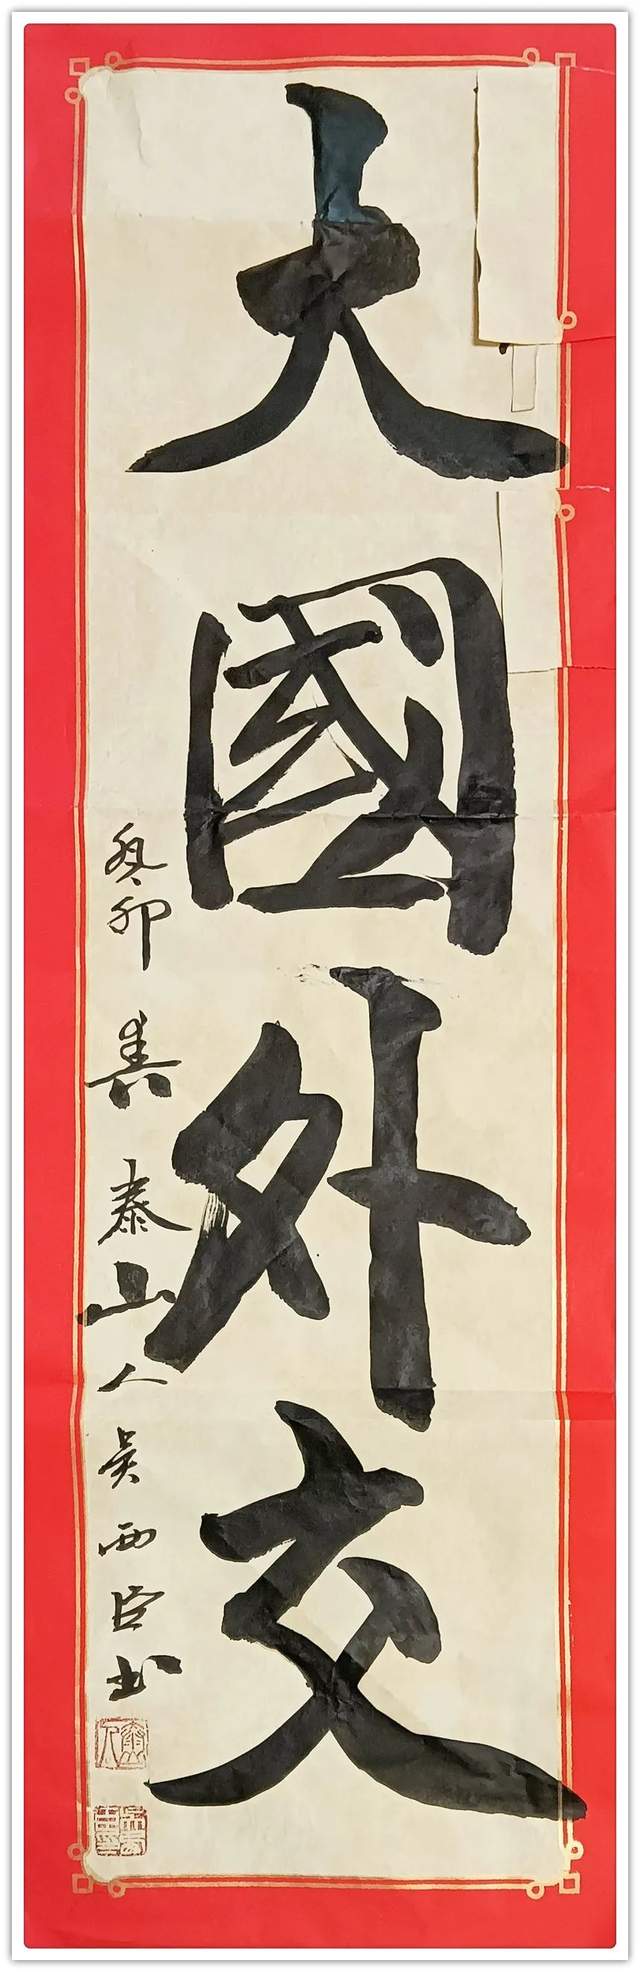 大國外交
癸卯 春 泰山人 吴西臣书